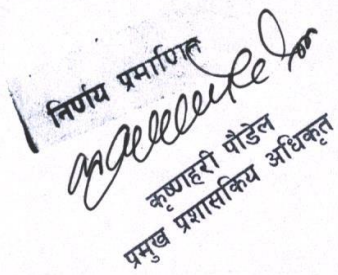 निर्णय प्रमाणित
कृष्णहरी पौडेल
प्रमुख प्रशासकिय अधिकृत